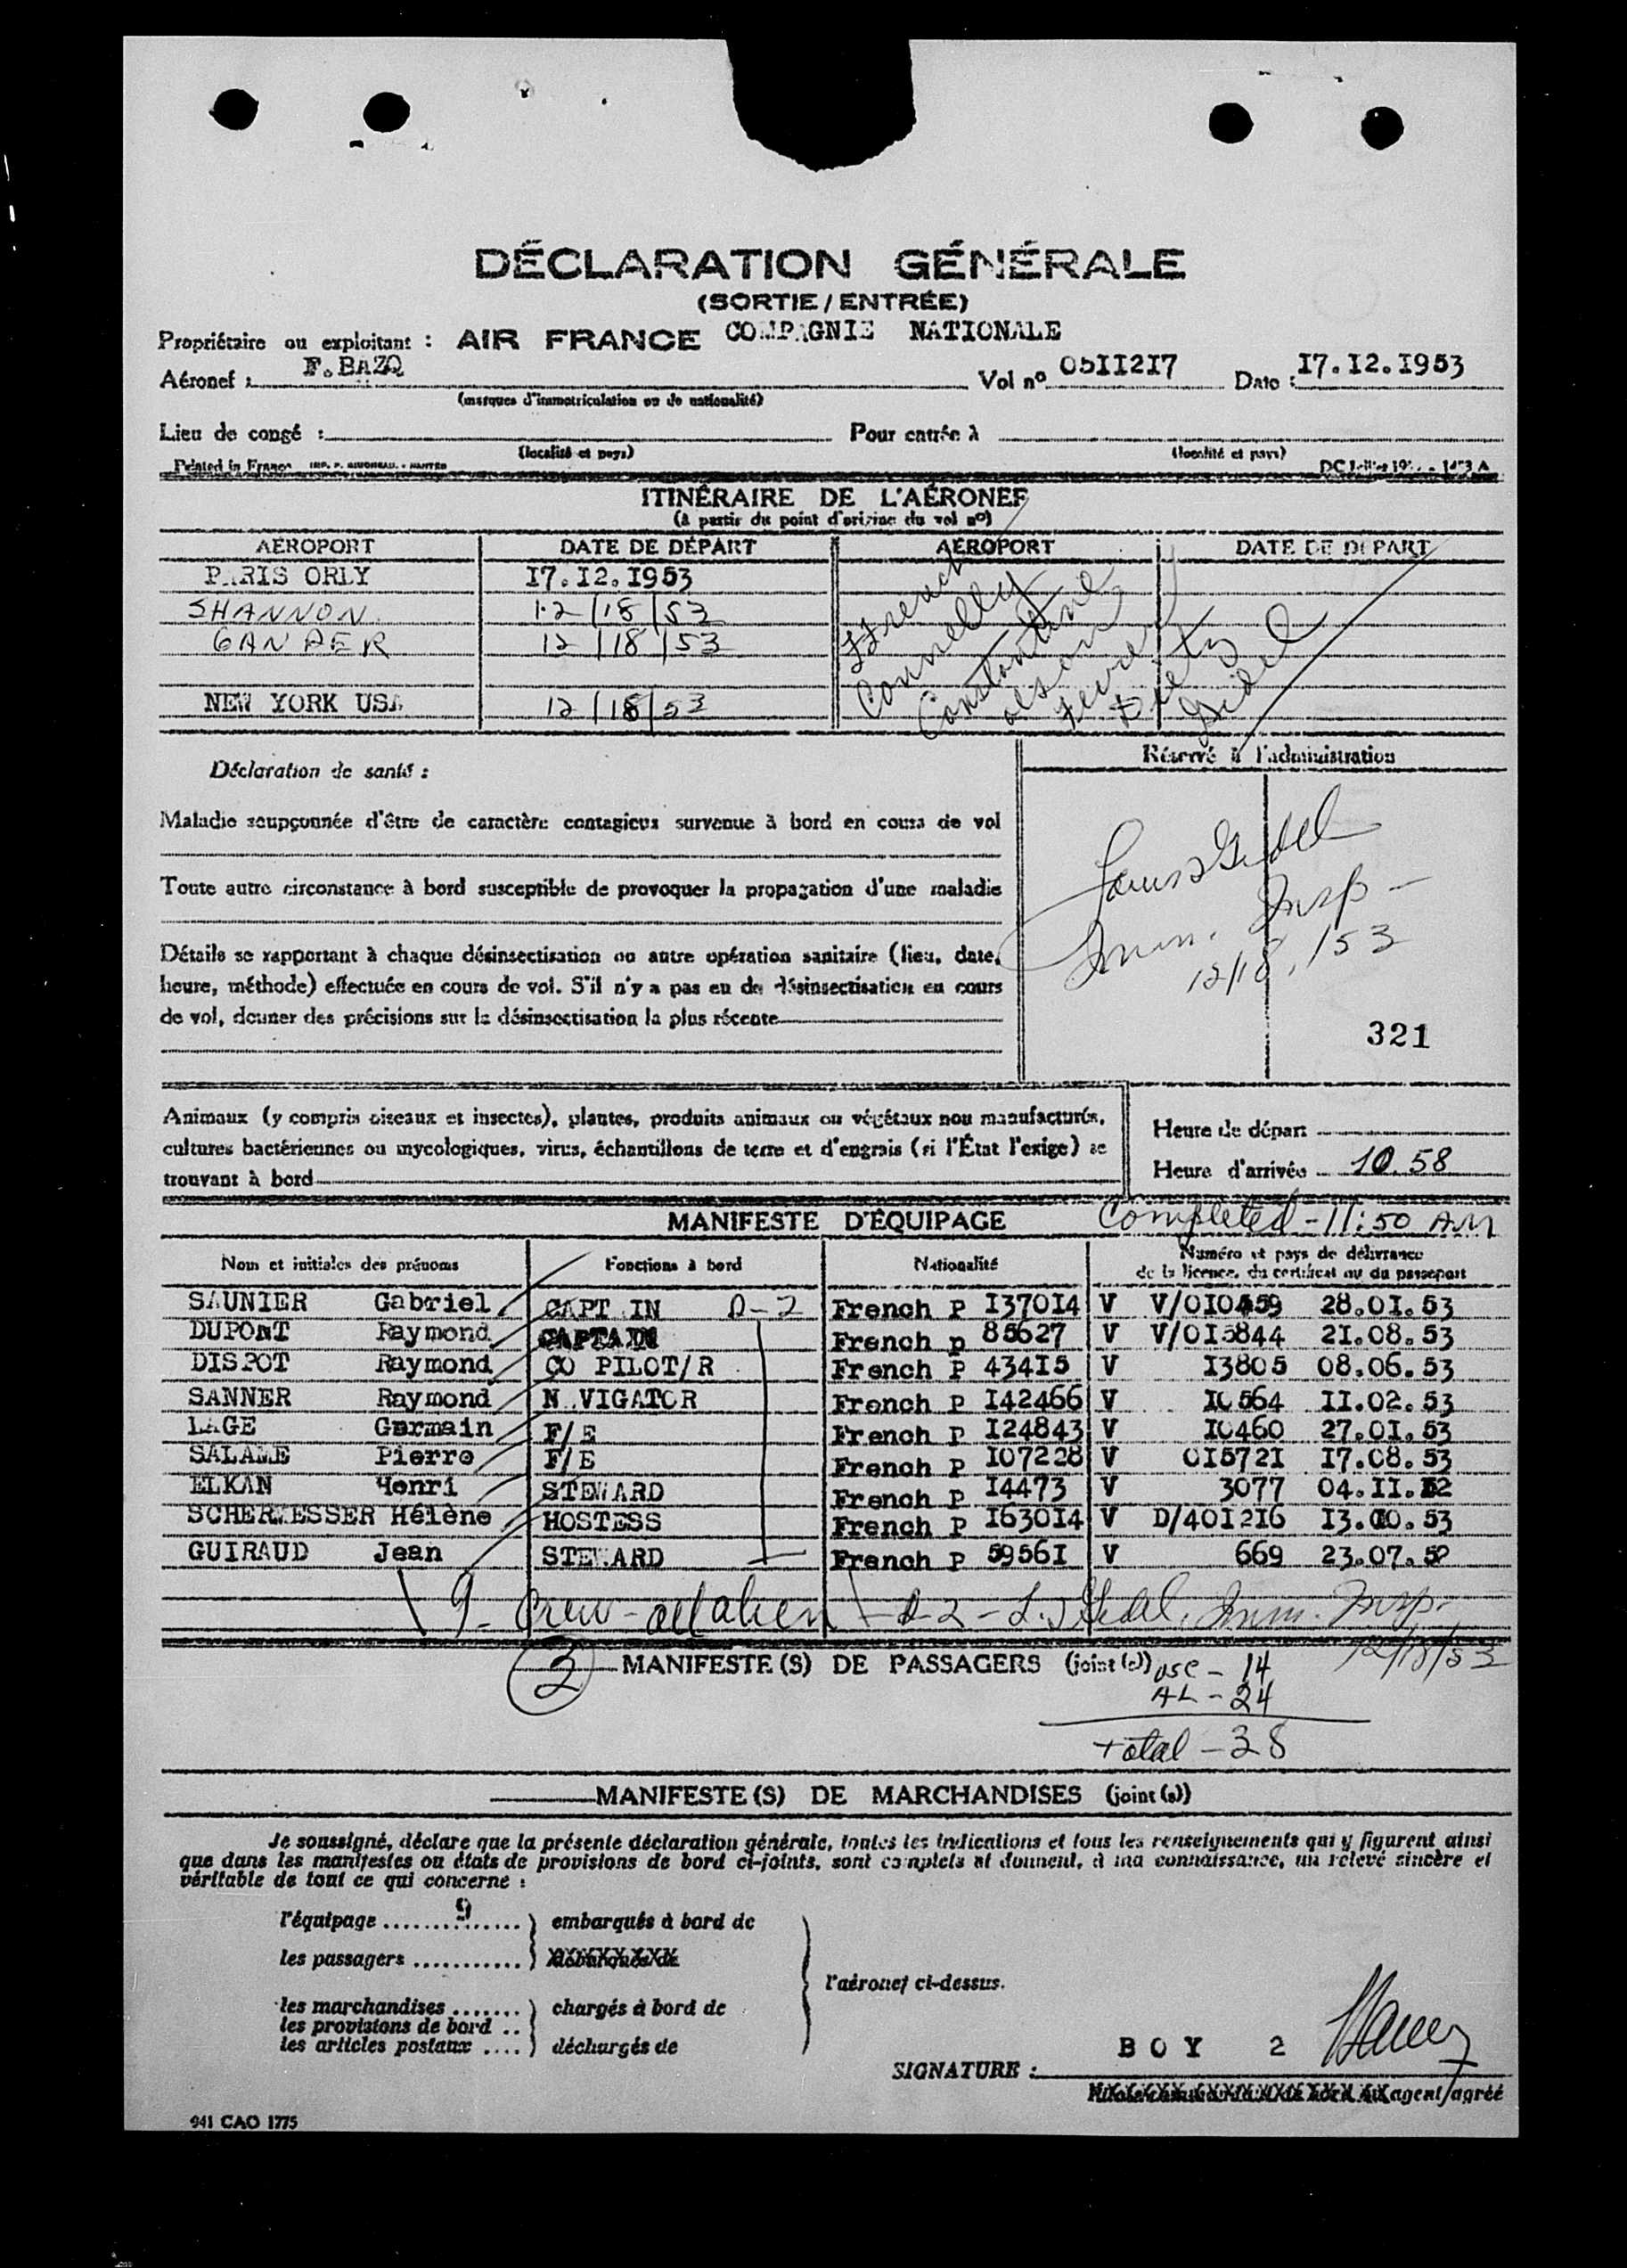 DÉCLARATION GÉNÉRALE
(SORTIE / ENTRÉE)
Propriétaire ou exploitant : AIR FRANCE COMPAGNIE NATIONALE
Aéronef : F.BAZQ Vol nº 0511217 Date : 17.12.1953
(marques d'immatriculation ou de nationalité)
Lieu de congé : Pour entrée à
(localité et pays) (localité et pays)
Printed in France
ITINÉRAIRE DE L'AÉRONEF
(à partir du point d'origine du vol nº)
AÉROPORT DATE DE DÉPART AÉROPORT DATE DE DÉPART
PARIS ORLY 17.12.1953
SHANNON 12/18/53
GANDER 12/18/53
NEW YORK USA 12/18/53
Connelly
Constantine
Olson
Dietz
Gidel
Déclaration de santé :
Réservé à l'administration
Maladie soupçonnée d'être de caractère contagieux survenue à bord en cours de vol
Toute autre circonstance à bord susceptible de provoquer la propagation d'une maladie
Détails se rapportant à chaque désinsectisation ou autre opération sanitaire (lieu, date,
heure, méthode) effectuée en cours de vol. S'il n'y a pas eu de désinsectisation en cours
de vol, donner des précisions sur la désinsectisation la plus récente
Louis Gidel
Imm. Insp -
12/18/53
321
Animaux (y compris oiseaux et insectes), plantes, produits animaux ou végétaux non manufacturés,
cultures bactériennes ou mycologiques, virus, échantillons de terre et d'engrais (si l'État l'exige) se
trouvant à bord
Heure de départ
Heure d'arrivée 10.58
MANIFESTE D'ÉQUIPAGE Completed - 11:50 AM
Nom et initiales des prénoms Fonctions à bord Nationalité Numéro et pays de délivrance
de la licence, du certificat ou du passeport
SAUNIER Gabriel CAPTAIN D-2 French P 137014 V V/010459 28.01.53
DUPONT Raymond CAPTAIN French p 85627 V V/015844 21.08.53
DISPOT Raymond CO PILOT/R French P 43415 V 13805 08.06.53
SANNER Raymond NAVIGATOR French P 142466 V 10564 11.02.53
LAGE Germain F/E French P 124843 V 10460 27.01.53
SALAME Pierre F/E French P 107228 V 015721 17.08.53
ELKAN Henri STEWARD French P 14473 V 3077 04.11.52
SCHERMESSER Hélène HOSTESS French P 163014 V D/401216 13.10.53
GUIRAUD Jean STEWARD French P 59561 V 669 23.07.52
9 - Crew - all alien - D-2 - L. Gidel, Imm. Insp -
12/18/53
3 MANIFESTE(S) DE PASSAGERS (joint(s)) USC - 14
AL - 24
Total - 38
MANIFESTE(S) DE MARCHANDISES (joint(s))
Je soussigné, déclare que la présente déclaration générale, toutes les indications et tous les renseignements qui y figurent ainsi
que dans les manifestes ou états de provisions de bord ci-joints, sont complets et donnent, à ma connaissance, un relevé sincère et
véritable de tout ce qui concerne :
l'équipage 9 embarqués à bord de
les passagers
l'aéronef ci-dessus.
les marchandises chargés à bord de
les provisions de bord
les articles postaux déchargés de
BOY 2
SIGNATURE :
agent agréé
941 CAO 1775